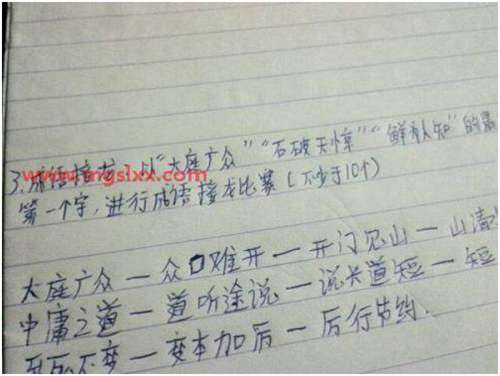 3.成语接龙,以“大庭广众”“石破天惊”“鲜有人知”的最
www.mgslxx.com
第一个字,进行成语接龙比赛(不少于10个)
大庭广众—众口难开—开门见山—山清
中庸之道—道听途说—说长道短—短
不变—变本加后—后行节约.